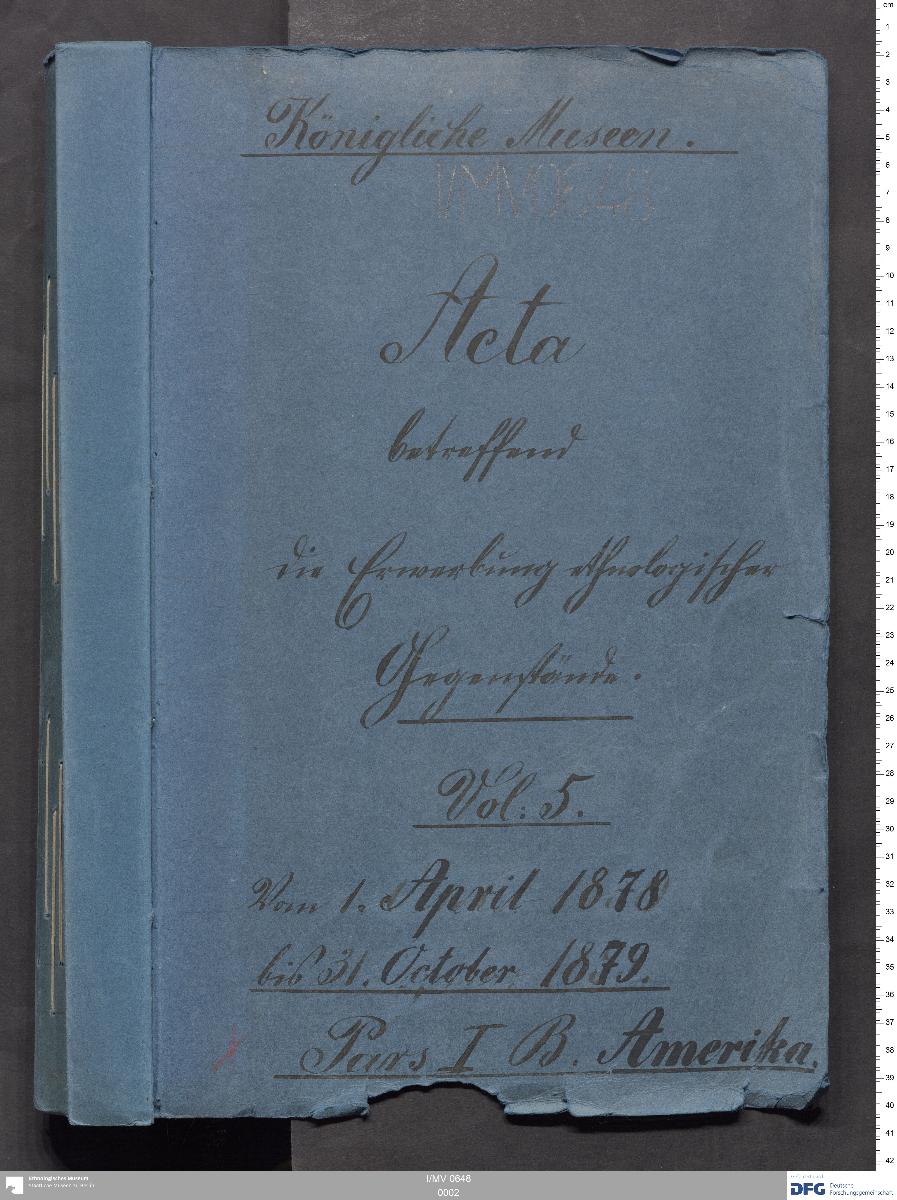 Königliche Museen.
I/MV 0648
Acta
betreffend
die Erwerbung ethnologischer
Gegenstände.
Vol: 5.
Vom 1. April 1878
bis 31. October 1879.
Pars I B. Amerika.
Ethnologisches Museum
Staatliche Museen zu Berlin
I/MV 0648
0002
DFG Deutsche
Forschungsgemeinschaft
cm
1
2
3
4
5
6
7
8
9
10
11
12
13
14
15
16
17
18
19
20
21
22
23
24
25
26
27
28
29
30
31
32
33
34
35
36
37
38
39
40
41
42